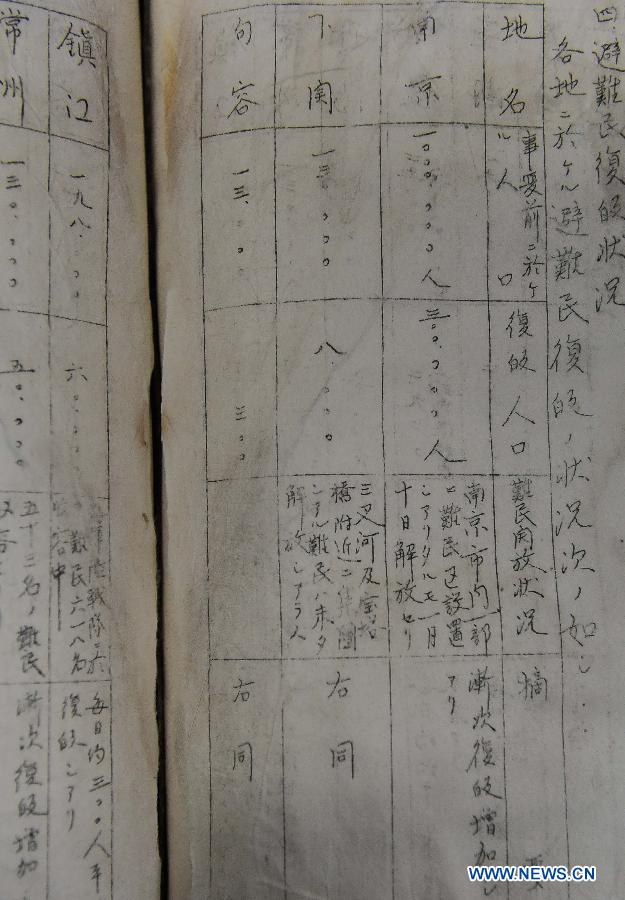 四、避難民復皈状況
各地ニ於ケル避難民復皈ノ状況次ノ如シ
地名
事変前ニ於ケ
ル人口
復皈人口
難民開放状況
摘要
南京
一〇〇〇.〇〇〇人
南京市内一部
ニ難民区設置
シアリタルモ一月
十日解放セリ
漸次復皈増加シ
アリ
下関
八.〇〇〇
三叉河及宝塔
橋附近ニ
シアル難民ハ未タ
解放シアラス
右同
句容
一三.〇〇〇
三〇〇
右同
鎮江
一九八.〇〇〇
六〇.〇〇〇
陸戦隊ニ於
難民六一八名
収容中
毎日約三〇〇人平
復皈シアリ
常州
一三〇.〇〇〇
五〇.〇〇〇
五十二名ノ難民
漸次復皈増加
新华网
WWW.NEWS.CN